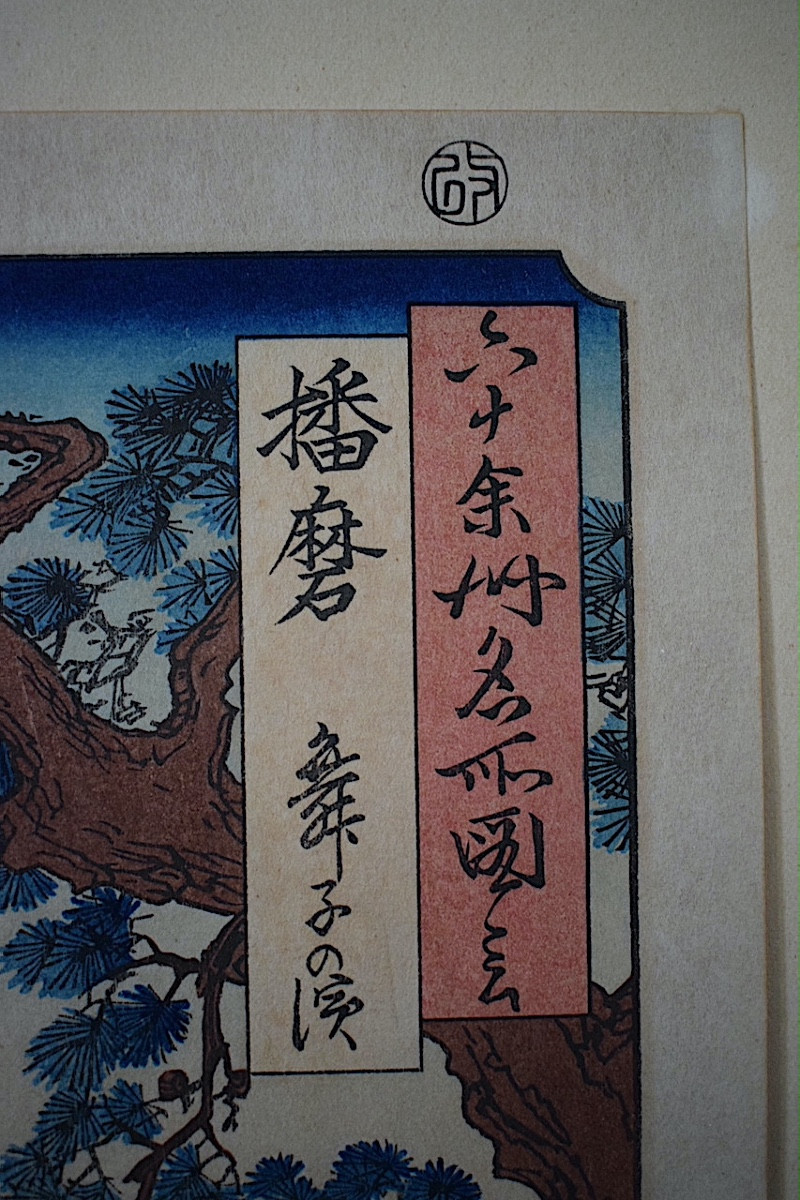 改
六十余州名所図会
播磨 舞子の濱